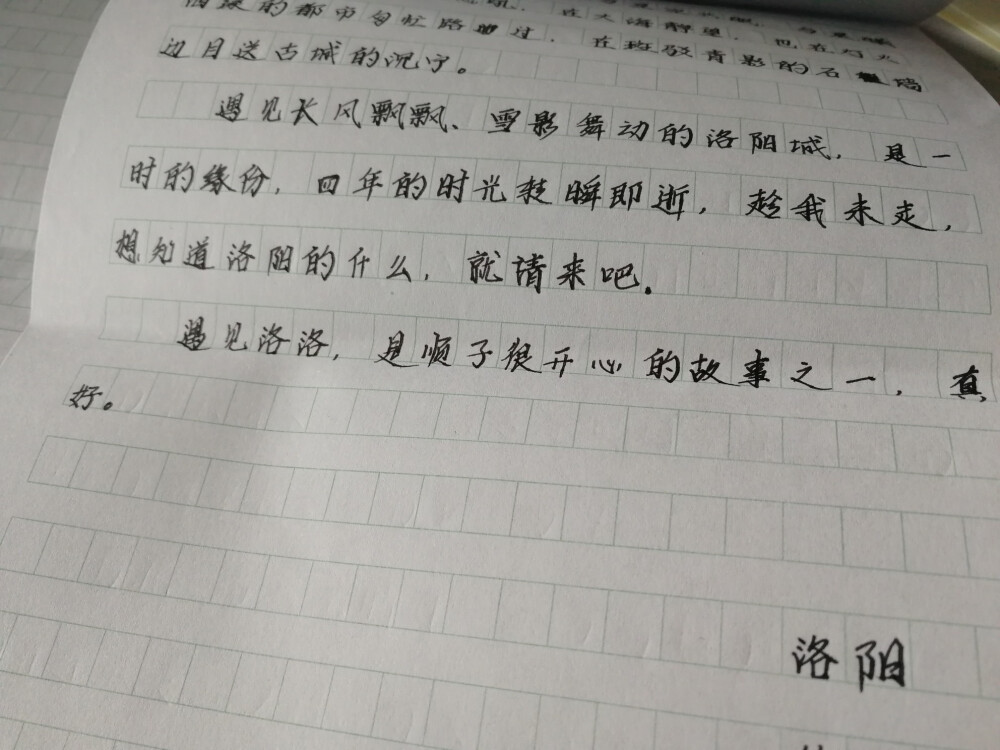 的都市匆忙路过，在斑驳青影的石墙
边目送古城的沉宁。
遇见长风飘飘、雪影舞动的洛阳城，是一
时的缘份，四年的时光转瞬即逝，趁我未走，
想知道洛阳的什么，就请来吧。
遇见洛洛，是顺子很开心的故事之一，真
好。
洛阳